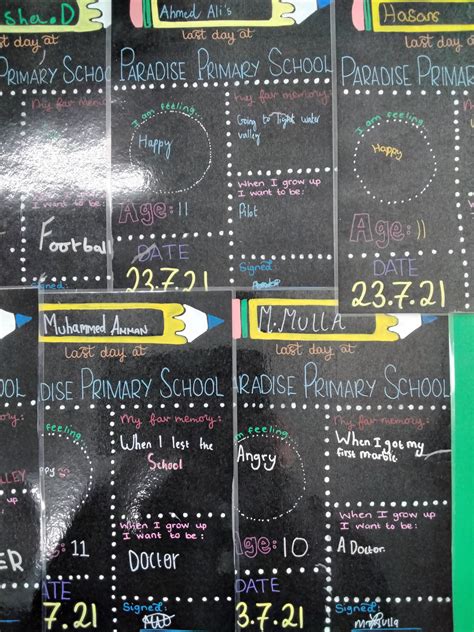 sha.D
st day at
PARADISE PRIMARY SCHOOL
My fav memo
When I grow up
I want to be:
Football
Signed:
Ahmed Ali's
last day at
PARADISE PRIMARY SCHOOL
I am feeling..
Happy
Age: 11
DATE
23.7.21
My fav memory:
Going to Tight water
valley
When I grow up
I want to be:
Pilot
Signed:
Hasans
last day at
PARADISE PRIMAR
I am feeling..
Happy
Age: 11
DATE
23.7.21
Muhammed Amman
last day at
DISE PRIMARY SCHOOL
feeling..
ppy
: 11
ATE
7.21
My fav memory:
When I lest the
School
When I grow up
I want to be:
Doctor
Signed:
OOL
ory:
LLEY
up
ER
M.MULLA
last day at
RADISE PRIMARY SCHOOL
m feeling..
Angry
ge: 10
DATE
3.7.21
My fav memory:
When I got my
first marble
When I grow up
I want to be:
A Doctor
Signed: